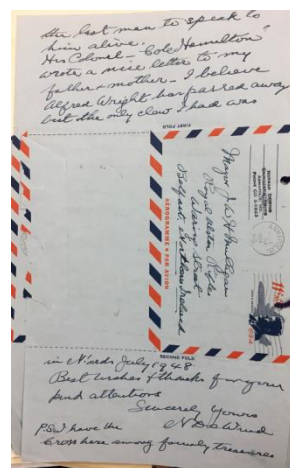 the last man to speak to
him alive.
His Colonel - Cole Hamilton
wrote a nice letter to my
father & mother - I believe
Alfred Wright has passed away
but the only clew I had was
FIRST FOLD
AEROGRAMME • PAR AVION
Major
Royal Ulster Rifles
Waring Street
Belfast, Northern Ireland
SECOND FOLD
in N'ards July 1948
Best wishes & thanks for your
kind attentions
Sincerely Yours
P.S. I have the
Cross here among family treasures